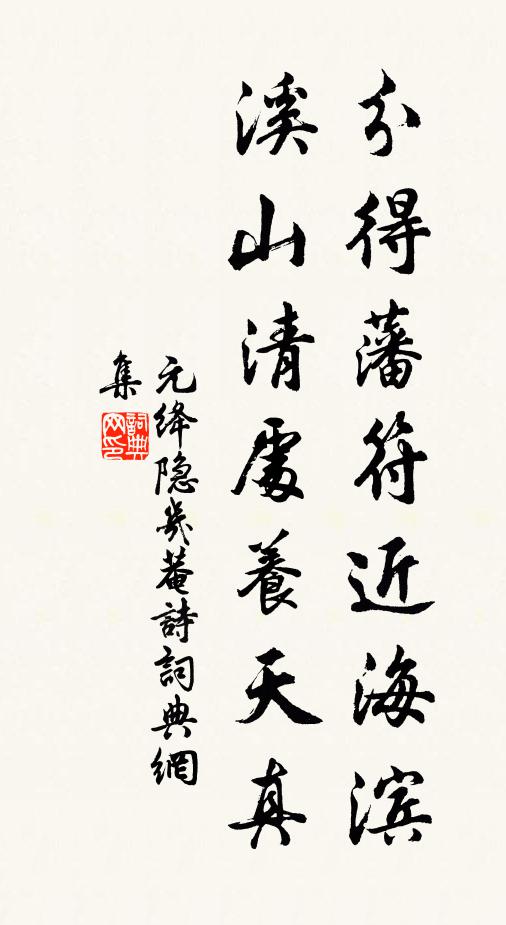 分得藩符近海滨
溪山清處養天真
元绛隐岁菴詩詞典網
集
詞典網印